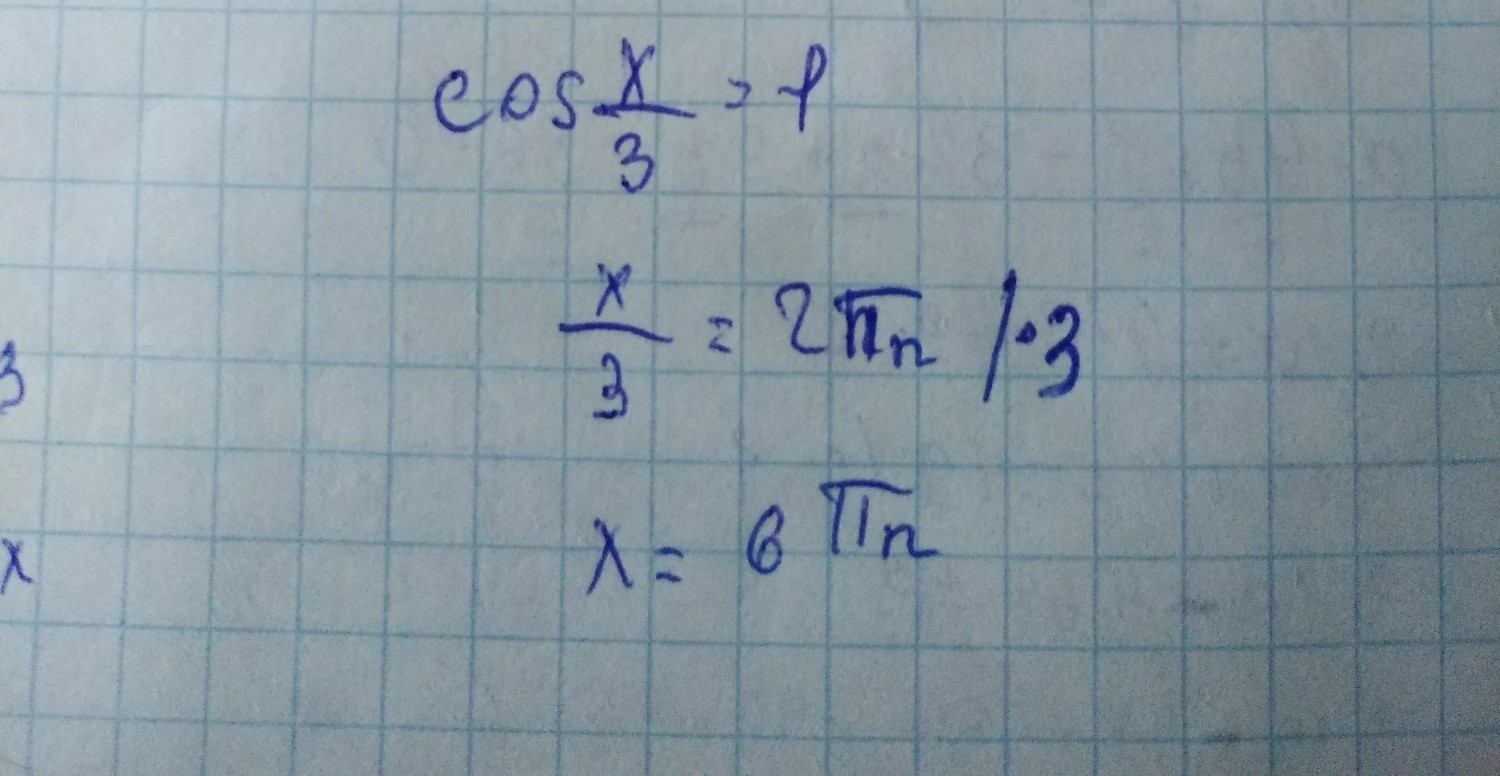 cos x/3 = 1
x/3 = 2πn /·3
3
x = 6πn
x